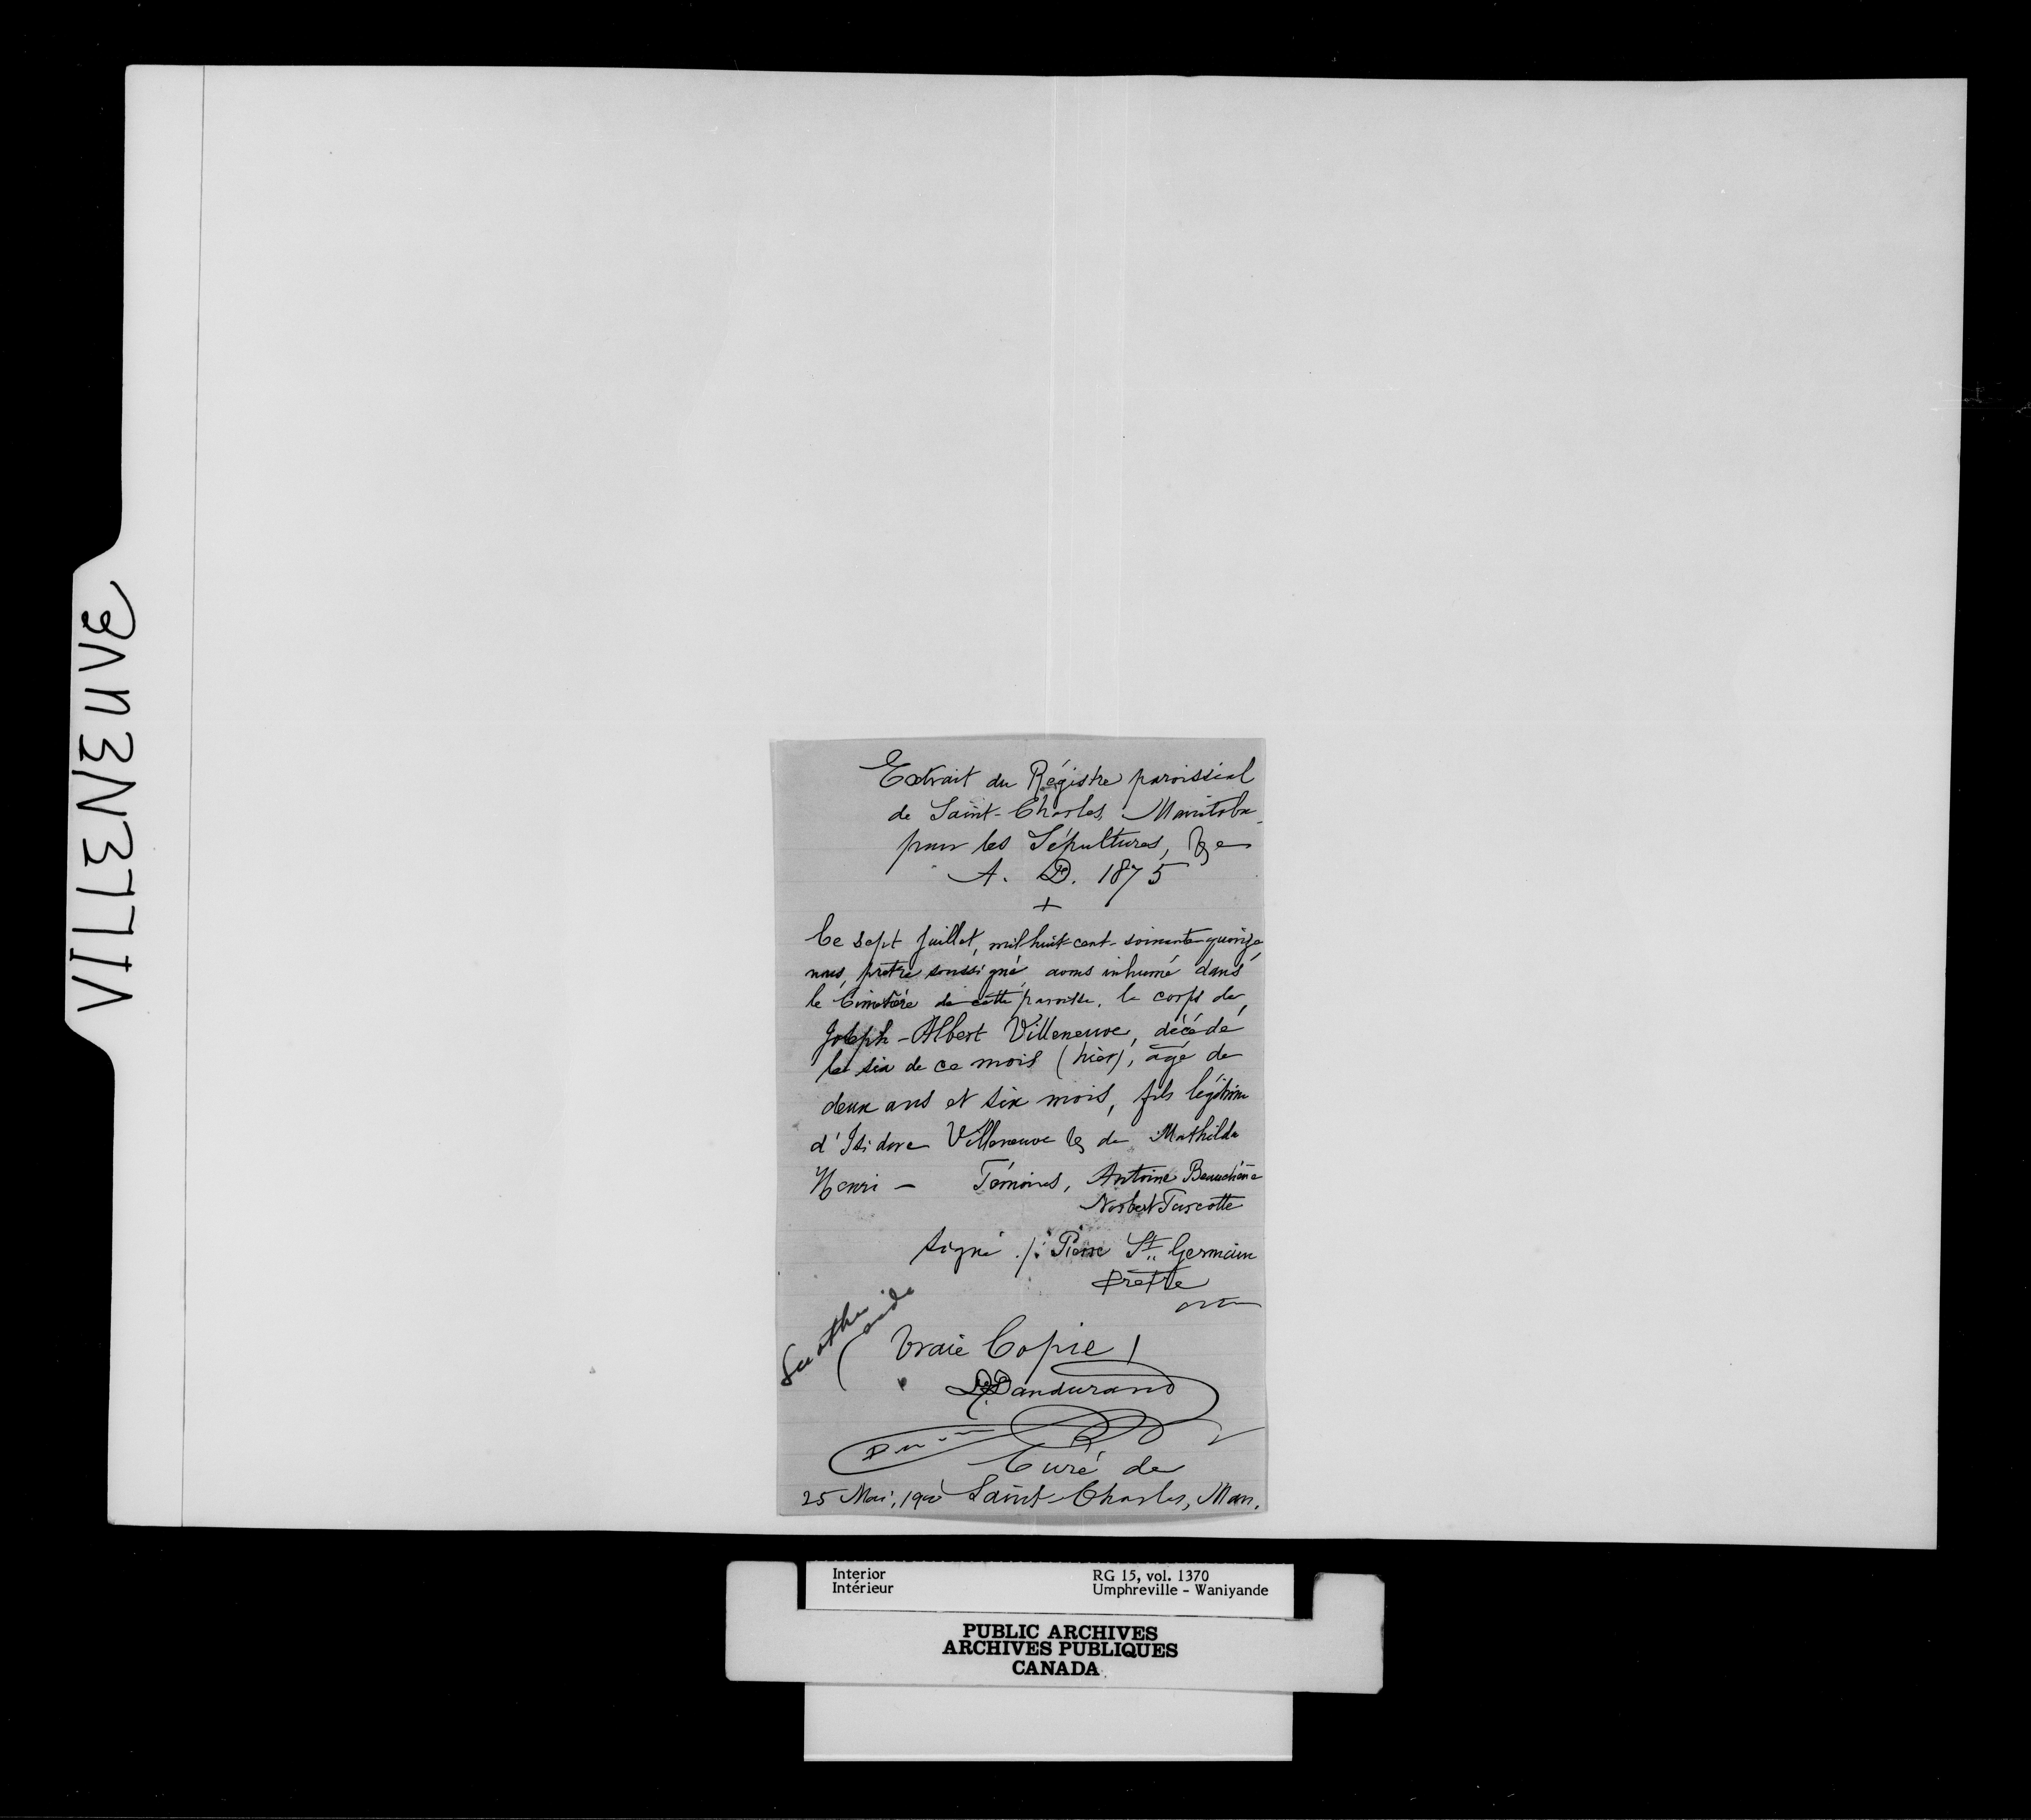 VILLENEUVE
Extrait du Régistre paroissial
de Saint-Charles, Manitoba
pour les Sépultures, &c
A. D. 1875
+
Ce sept Juillet, mil huit cent-soixante-quinze,
nous, prêtre soussigné, avons inhumé dans
le Cimetière de cette paroisse, le corps de
Joseph-Albert Villeneuve, décédé
le six de ce mois (hier), âgé de
deux ans et six mois, fils légitime
d'Isidore Villeneuve & de Mathilde
Henri – Témoins, Antoine Beauchêne
Norbert Turcotte
Signé ./. Pierre St. Germain
Prêtre
See other
side
Vraie Copie !
Dandurand
Curé de
25 Mai, 1900 Saint-Charles, Man.
Interior RG 15, vol. 1370
Intérieur Umphreville - Waniyande
PUBLIC ARCHIVES
ARCHIVES PUBLIQUES
CANADA